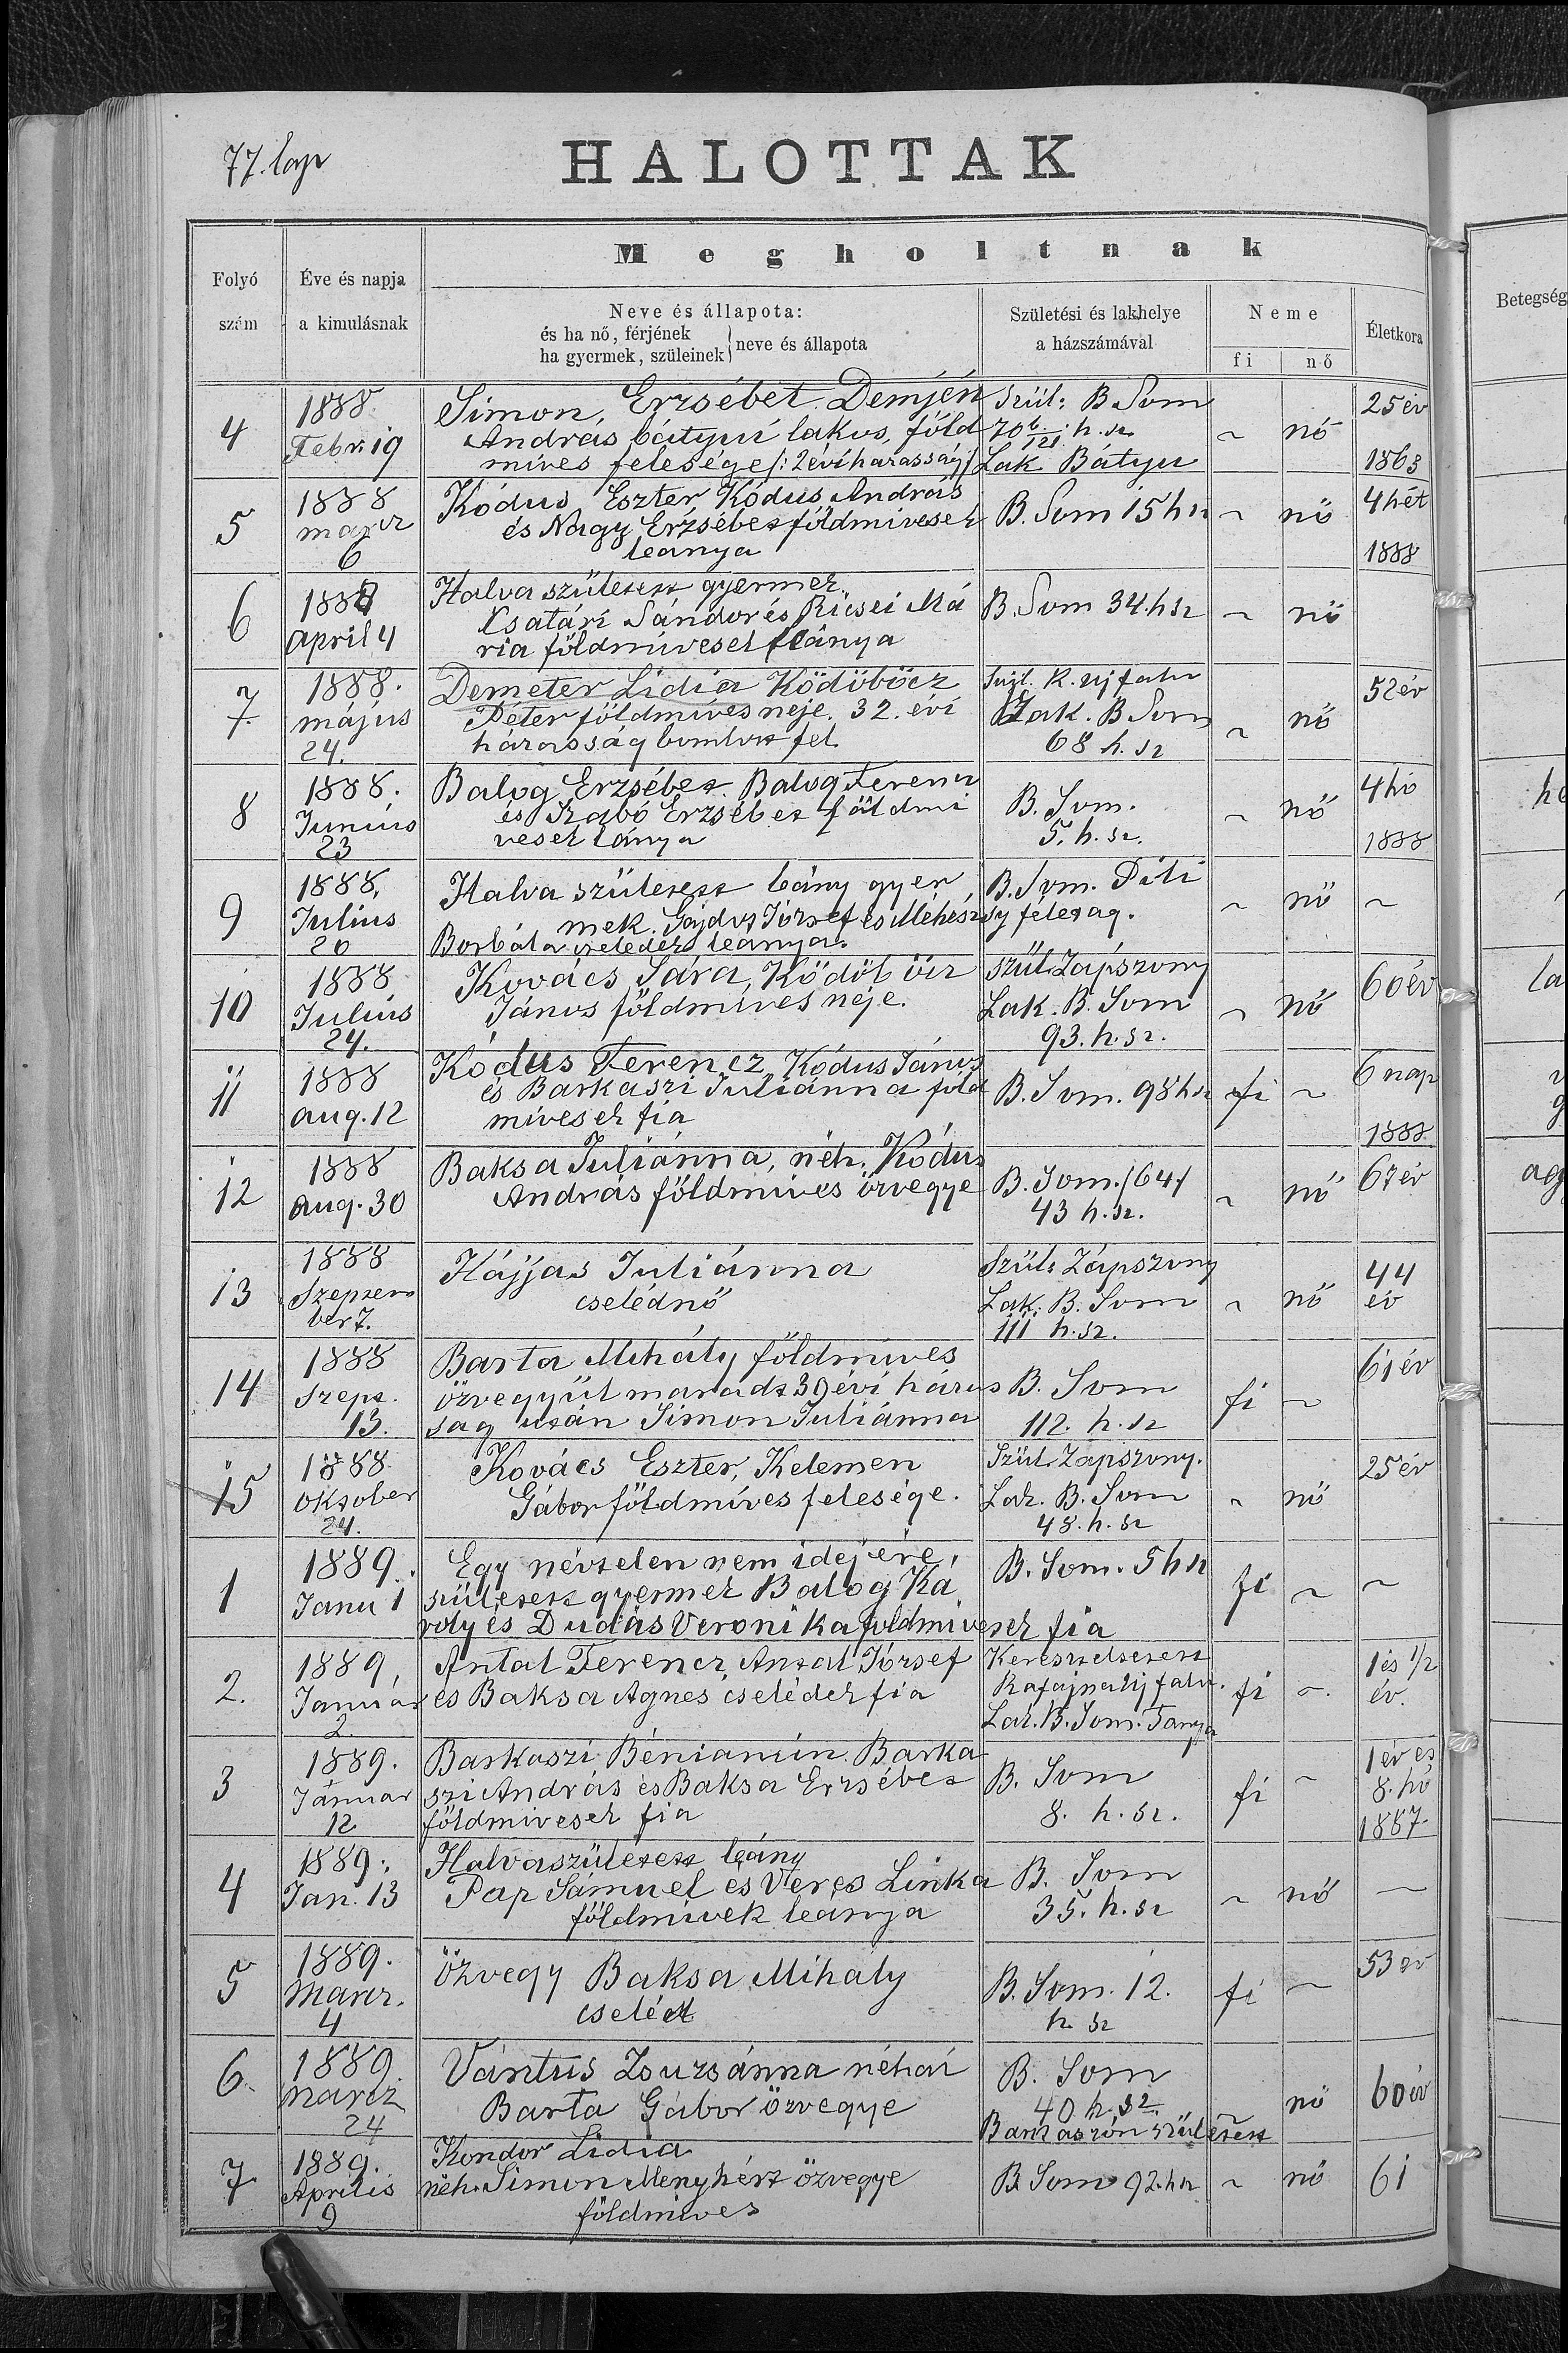 77. lap
HALOTTAK
Megholtnak
Folyó szám
Éve és napja a kimulásnak
Neve és állapota:
és ha nő, férjének
ha gyermek, szüleinek } neve és állapota
Születési és lakhelye a házszámával
Neme
fi nő
Életkora
Betegség
4 1888 Febr. 19
Simon Erzsébet Demjén
András bátyui lakos, föld
míves felesége /: 2 évi harasság/
Szül: B Som
70 6/121 h. sz
Lak Bátyu
~ nő 25 év 1863
5 1888 marcz 6
Kódus Eszter Kódus András
és Nagy Erzsébet földmivesek
leánya
B. Som 15 h sz ~ nő 4 hét 1888
6 1888 april 4
Halva született gyermek
Csatári Sándor és Ricsei Má
ria földmívesek leánya
B. Som 34. h sz ~ nő
7. 1888. május 24.
Demeter Lidia Ködöböcz
Péter földmíves neje. 32. évi
házasság bomlott fel.
Szül. K. ujfalu
Lak. B Som
68 h. sz
~ nő 52 év
8 1888. Junius 23
Balog Erzsébet Balog Ferencz
és Szabó Erzsébet földmi
vesek lánya
B. Som.
5. h. sz.
~ nő 4 hó 1888
9 1888. Julius 20
Halva született leány gyer
mek. Gajdos József és Méhész
Borbála cselédek leánya.
B. Som.
~ nő ~
10 1888 Julius 24.
Kovács Sára, Ködöböcz
János földmíves neje.
szül Zápszony
Lak. B. Som
93. h. sz.
~ nő 60 év
11 1888 aug. 12
Kódus Ferencz Kódus János
és Barkaszi Juliánna föld
mívesek fia
B. Som. 98 h sz fi ~ 6 nap 1888
12 1888 aug. 30
Baksa Juliánna, néh. Kódus
András földmíves özvegye
B. Som. /64/
43 h. sz.
~ nő 67 év
13 1888 Szeptem
ber 7.
Hájjas Juliánna
cselédnő
Szül: Zápszony
Lak: B. Som
111 h. sz.
~ nő 44 év
14 1888 Szept. 13.
Barta Mihály földmíves
özvegyűl maradt 39 évi házas
ság után Simon Juliánna
B. Som
112. h. sz
fi ~ 61 év
15 1888 Oktober 24.
Kovács Eszter, Kelemen
Gábor földmíves felesége.
Szül. Zápszony.
Lak. B. Som
48. h. sz
~ nő 25 év
1 1889. Janu 1
Egy névtelen nem idejére
született gyermek Balog Ká
roly és Dudás Veronika földmivesek fia
B. Som. 5 h sz fi ~ ~
2. 1889. Január 2.
Antal Ferencz Antal József
és Baksa Agnes cselédek fia
Rafajnaujfalu.
Lak. B. Som. Tanya
fi ~. 1 és 1/2 év.
3 1889. Január 12
Barkaszi Béniamin. Barka
szi András és Baksa Erzsébet
földmivesek fia
B. Som
8. h. sz.
fi ~ 1 év és 8. hó 1887.
4 1889. Jan. 13
Halvaszületett leány
Pap Sámuel és Veres Linka
földmívek leánya
B. Som
35. h. sz
~ nő —
5 1889. Marcz. 4
özvegy Baksa Mihály
cseléd
B. Som. 12.
h. sz
fi ~ 53 év
6. 1889. marcz 24
Vántus Zsuzsánna néhai
Barta Gábor özvegye
B. Som
40 h. sz.
született
nő 60 év
7 1889. Április 9
Kondor Lidia
néh. Simon Menyhért özvegye
földmives
B. Som 92. h sz ~ nő 61